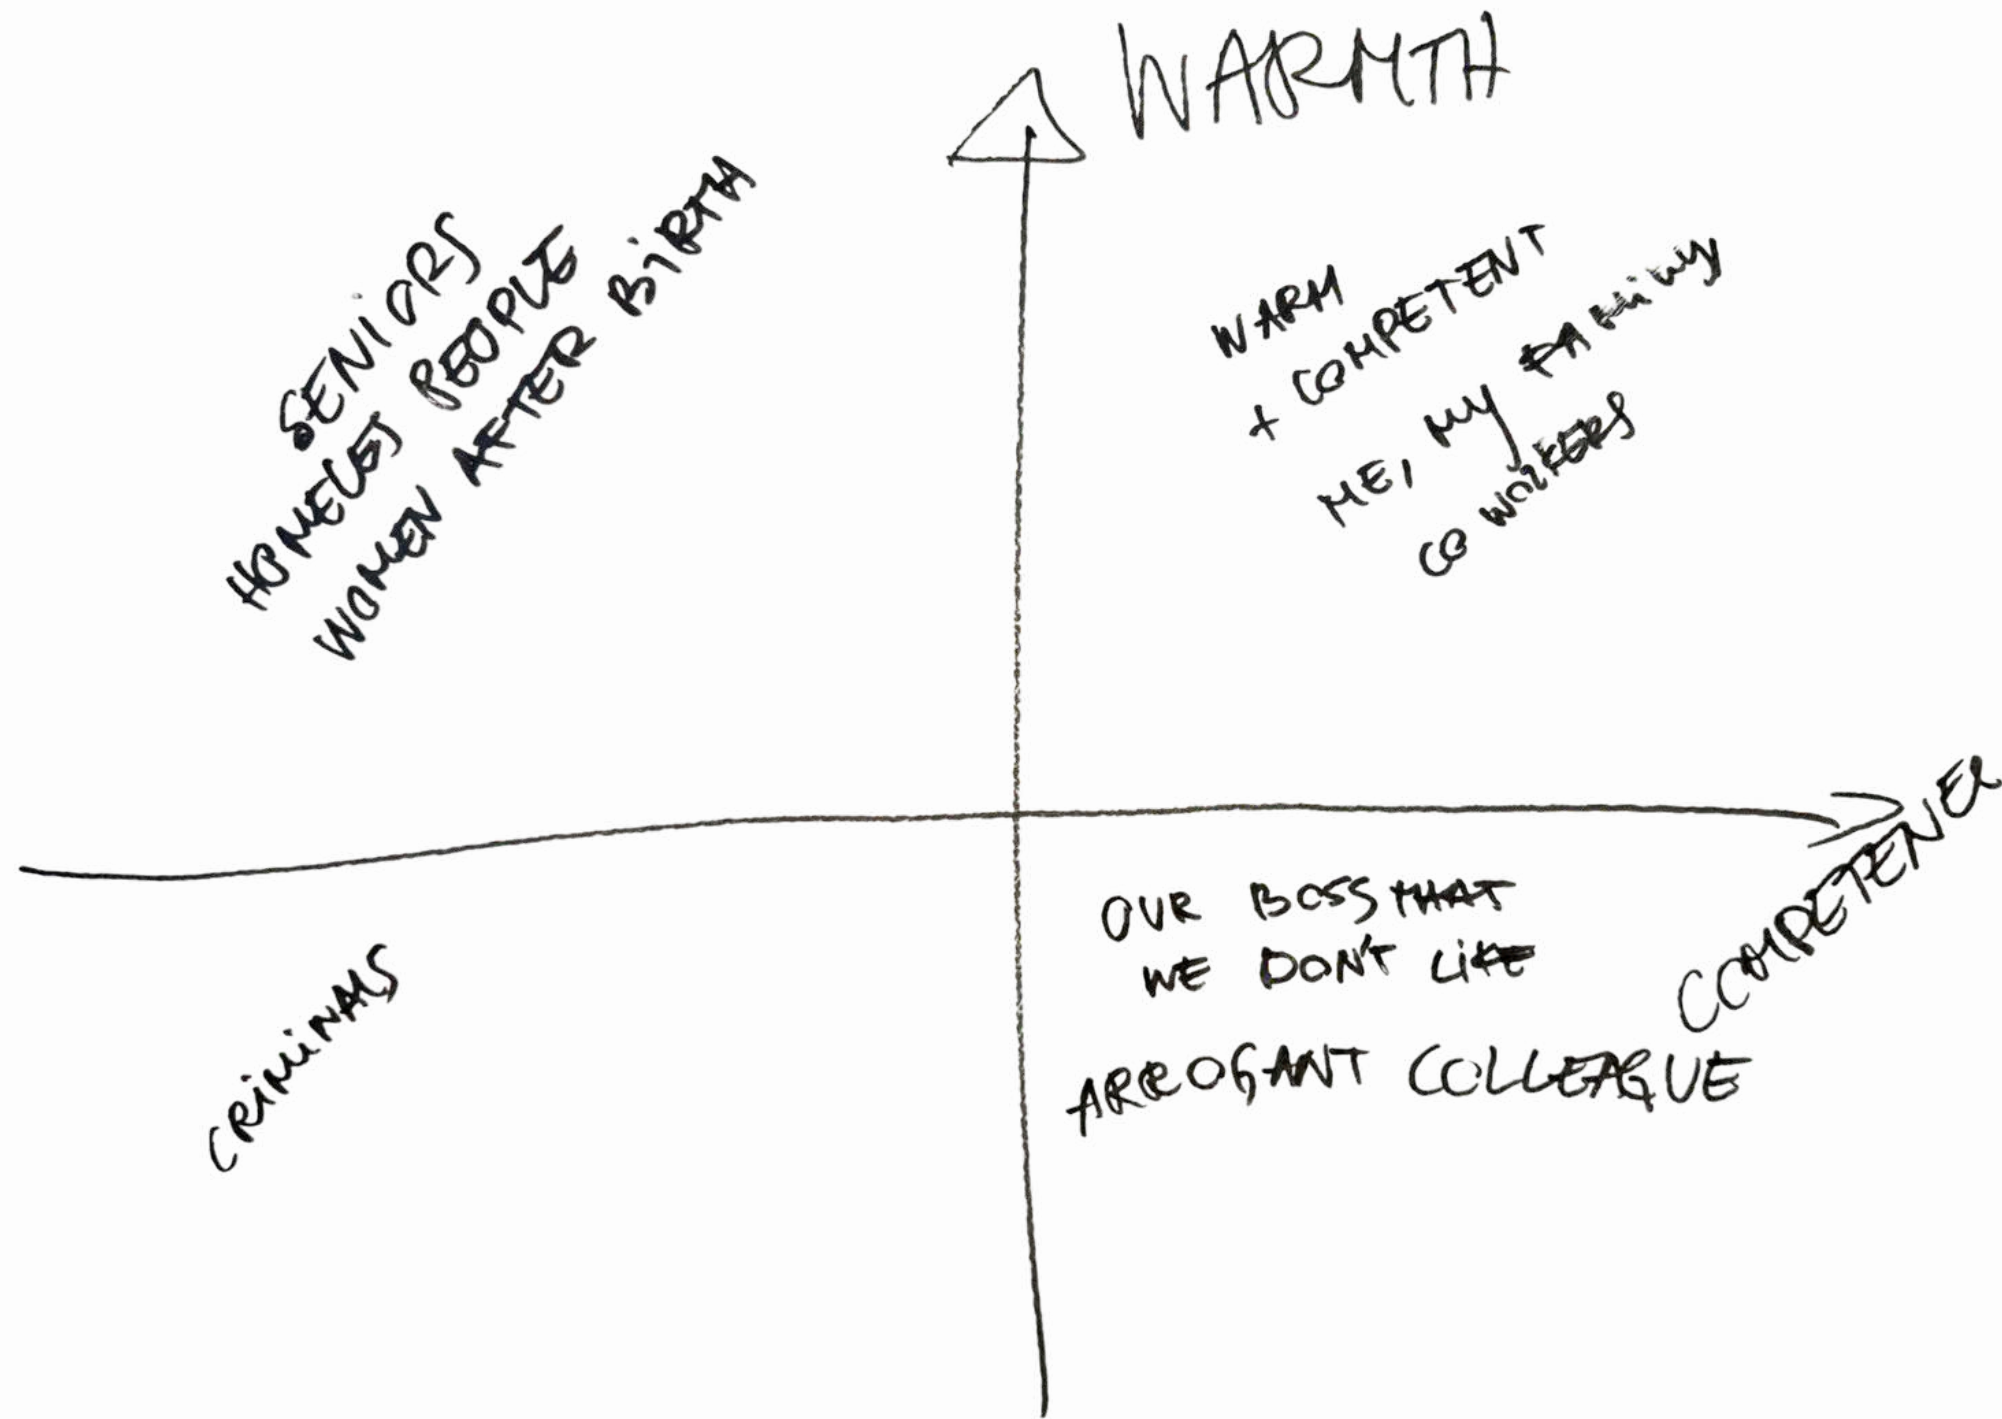 WARMTH
SENIORS
HOMELES PEOPLE
WOMEN AFTER BIRTH
WARM
+ COMPETENT
ME, MY FAMILY
CO WORKERS
COMPETENCE
OUR BOSS THAT
WE DON'T LIKE
ARROGANT COLLEAGUE
CRIMINALS